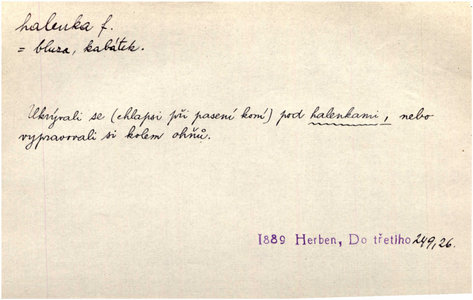 halenka f.
= bluza, kabátek.
Ukrývali se (chlapsi při pasení komí) pod halenkami, nebo
vypravovali si kolem ohňů.
1889 Herben, Do třetího 249,26.